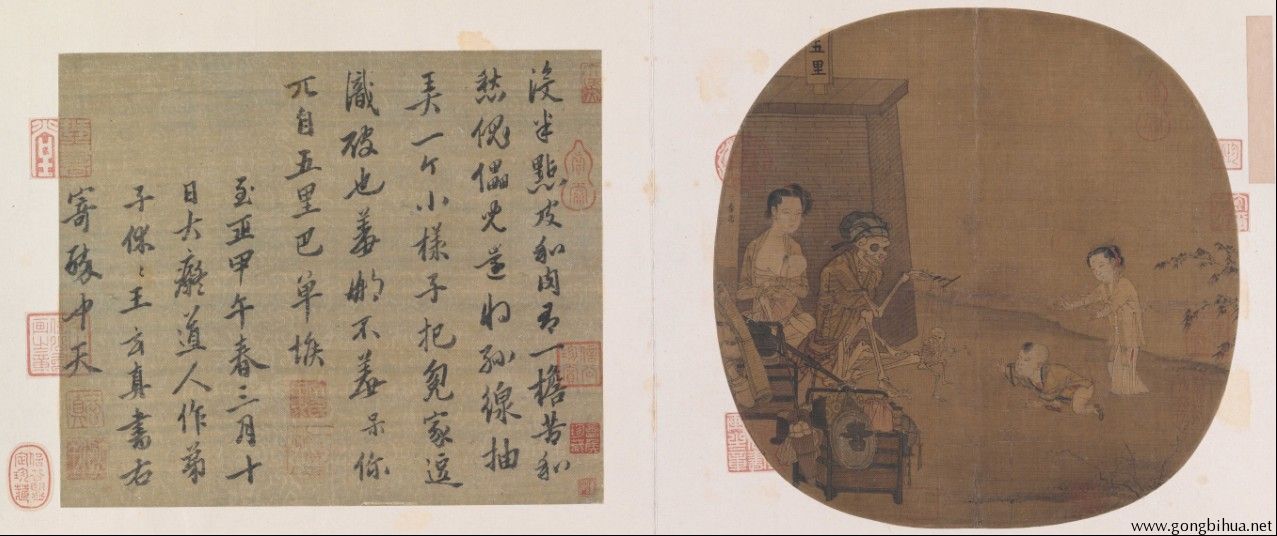 没半點皮和肉有一擔苦和
愁傀儡兒還將絲線抽
弄一个小樣子把冤家逗
識破也羞那不羞呆你
兀自五里巴單堠
至正甲午春三月十
日大癡道人作弟
子休々王玄真書右
寄醉中天
五里
www.gongbihua.net